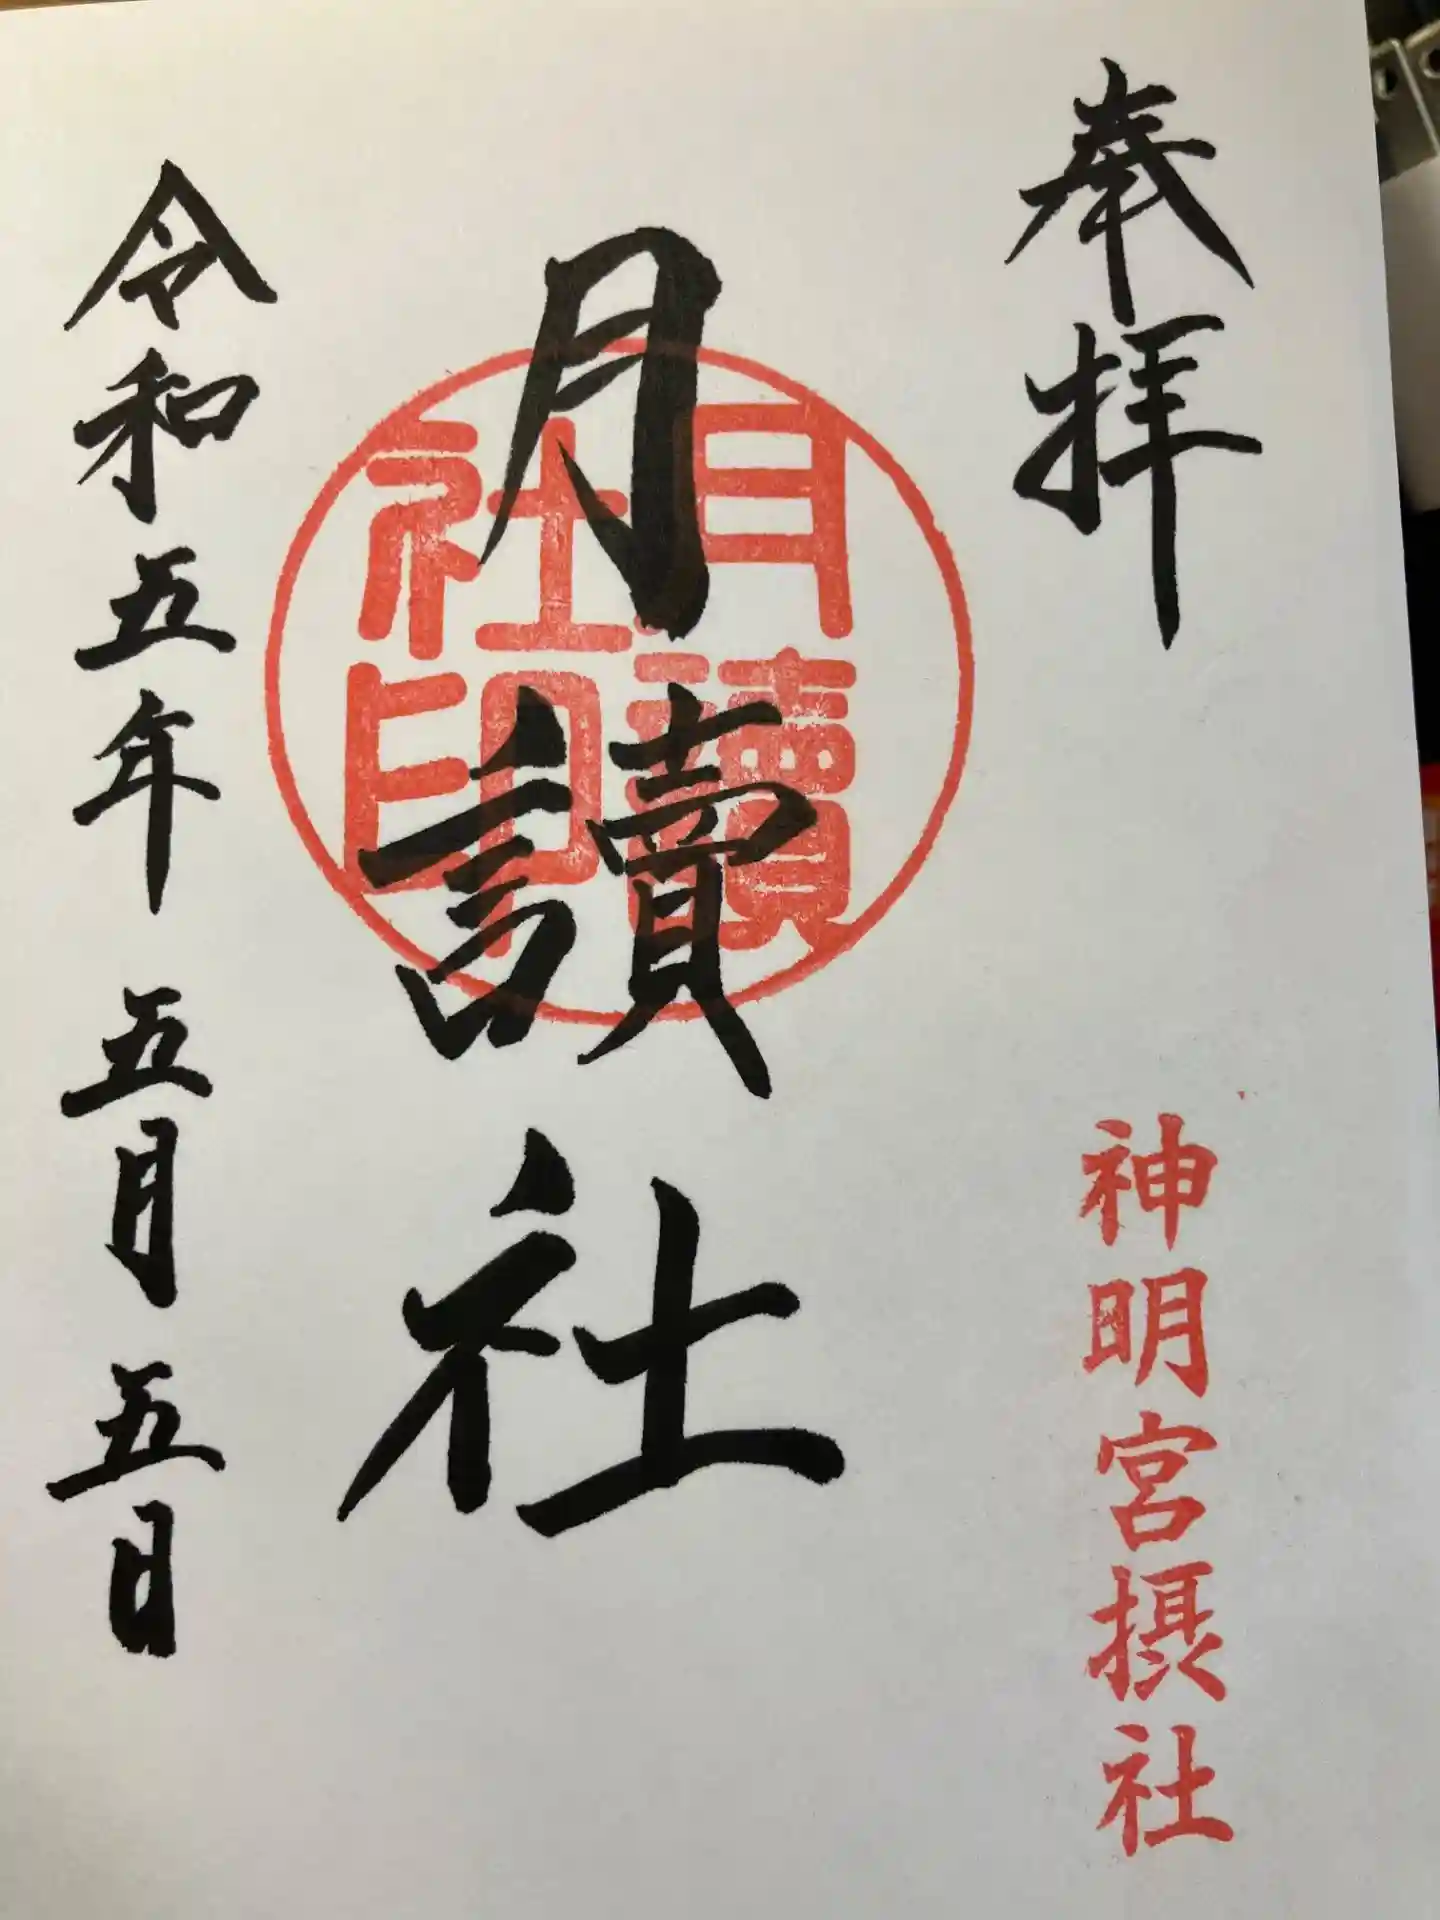 奉拝
神明宮摂社
月讀社
月讀
社印
令和五年五月五日